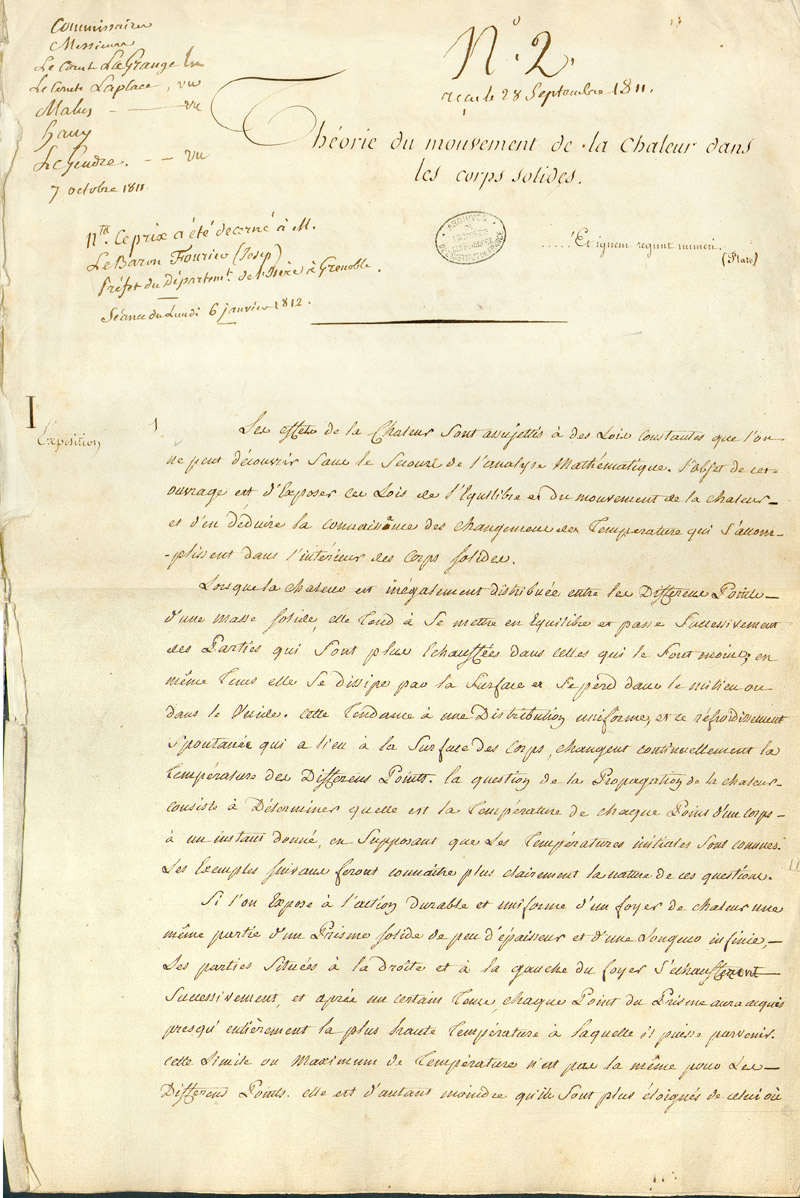 Commissaires
Messieurs
Le Comte LaGrange lu
Le Comte Laplace, vu
Malus — vu
Haüy
LeGendre. — — vu
7 octobre 1811
N° 2.
reçu le 28 Septembre 1811.
Théorie du mouvement de la Chaleur dans
les corps solides.
Nta. Ce prix a été décerné à M.
Le Baron Fourier (Josep)
Préfet du Départemt. de l'Isère à Grenoble.
Séance du Lundi 6 janvier 1812.
ARCHIVES DE L'INSTITUT DE FRANCE
.....Et ignem regunt numeri.
(Plato)
I
Exposition
1
Les effets de la Chaleur sont assujettis à des Lois constantes que l'on
ne peut découvrir sans le secours de l'analyse Mathématique. l'objet de cet
ouvrage est d'Exposer ces Lois de l'Equilibre et du mouvement de la chaleur
et d'en déduire la connaissance des changemens de Température qui s'accom-
-plissent dans l'intérieur des Corps solides.
Lorsque la chaleur est inégalement distribuée entre les Différens Points
d'une masse solide, elle tend à se mettre en Equilibre et passe successivement
des Parties qui sont plus Echauffées dans celles qui le sont moins; en
même tems elle se dissipe par la surface et se perd dans le milieu ou
dans le Vuide. cette tendance à une Distribution uniforme, et ce réfroidissement
Spontanée qui a lieu à la surface des corps, changent continuellement la
température des Différens Points. la question de la Propagation de la chaleur
consiste à Déterminer quelle est la Température de chaque Point d'un corps
à un instant donné, en supposant que les Températures initiales sont connues.
Les Exemples suivans feront connaître plus clairement la nature de ces questions.
Si l'on Expose à l'action durable et uniforme d'un foyer de chaleur une
même partie d'un Prisme solide de peu d'épaisseur et d'une longueur infinie,
Les parties situées à la droite et à la gauche du foyer s'échaufferont
successivement, et après un certain tems, chaque Point du Prisme aura acquis
presqu'entièrement la plus haute température à laquelle il puisse parvenir.
cette Limite ou Maximum de température n'est pas la même pour les
Différens Points. elle est d'autant moindre qu'ils sont plus éloignés de celui où